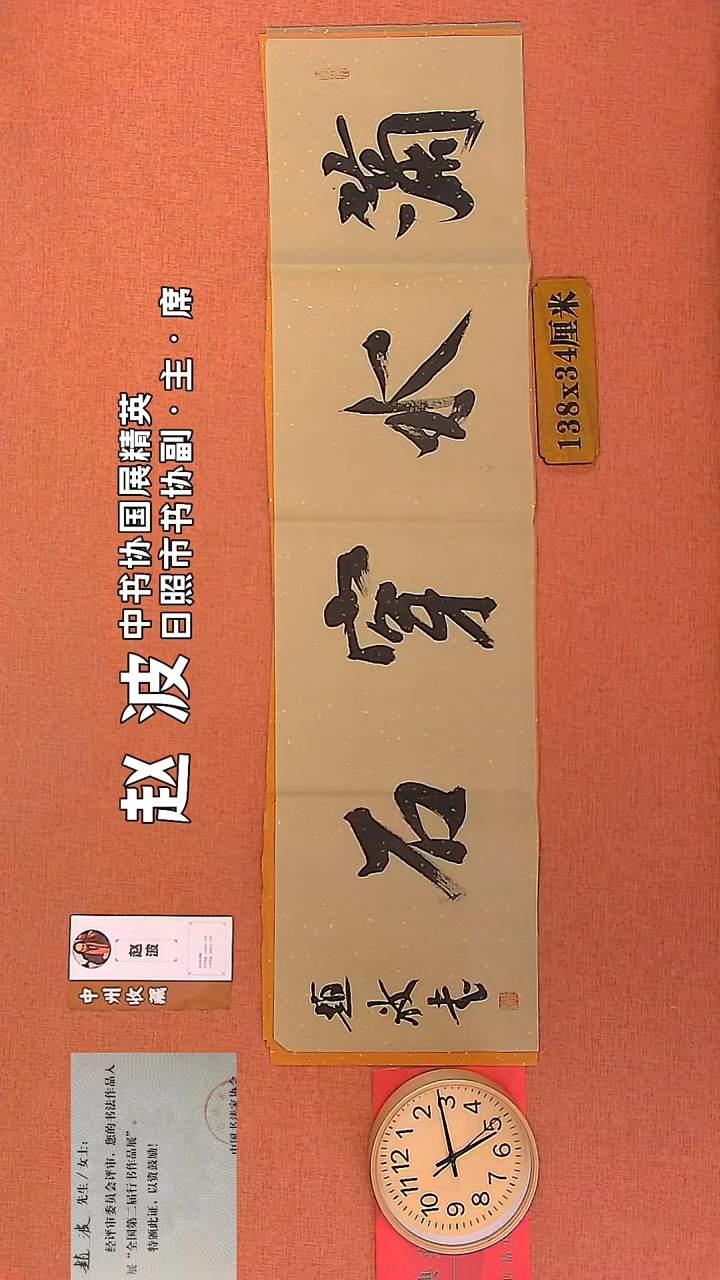 赵波
中书协国展精英
日照市书协副·主·席
赵波
中州收藏
赵波 先生/女士：
经评审委员会评审，您的书法作品入
展“全国第二届行书作品展”。
特颁此证，以资鼓励！
中国书法家协会
滴水穿石
赵波书
138x34厘米
12
1
2
3
4
5
6
7
8
9
10
11